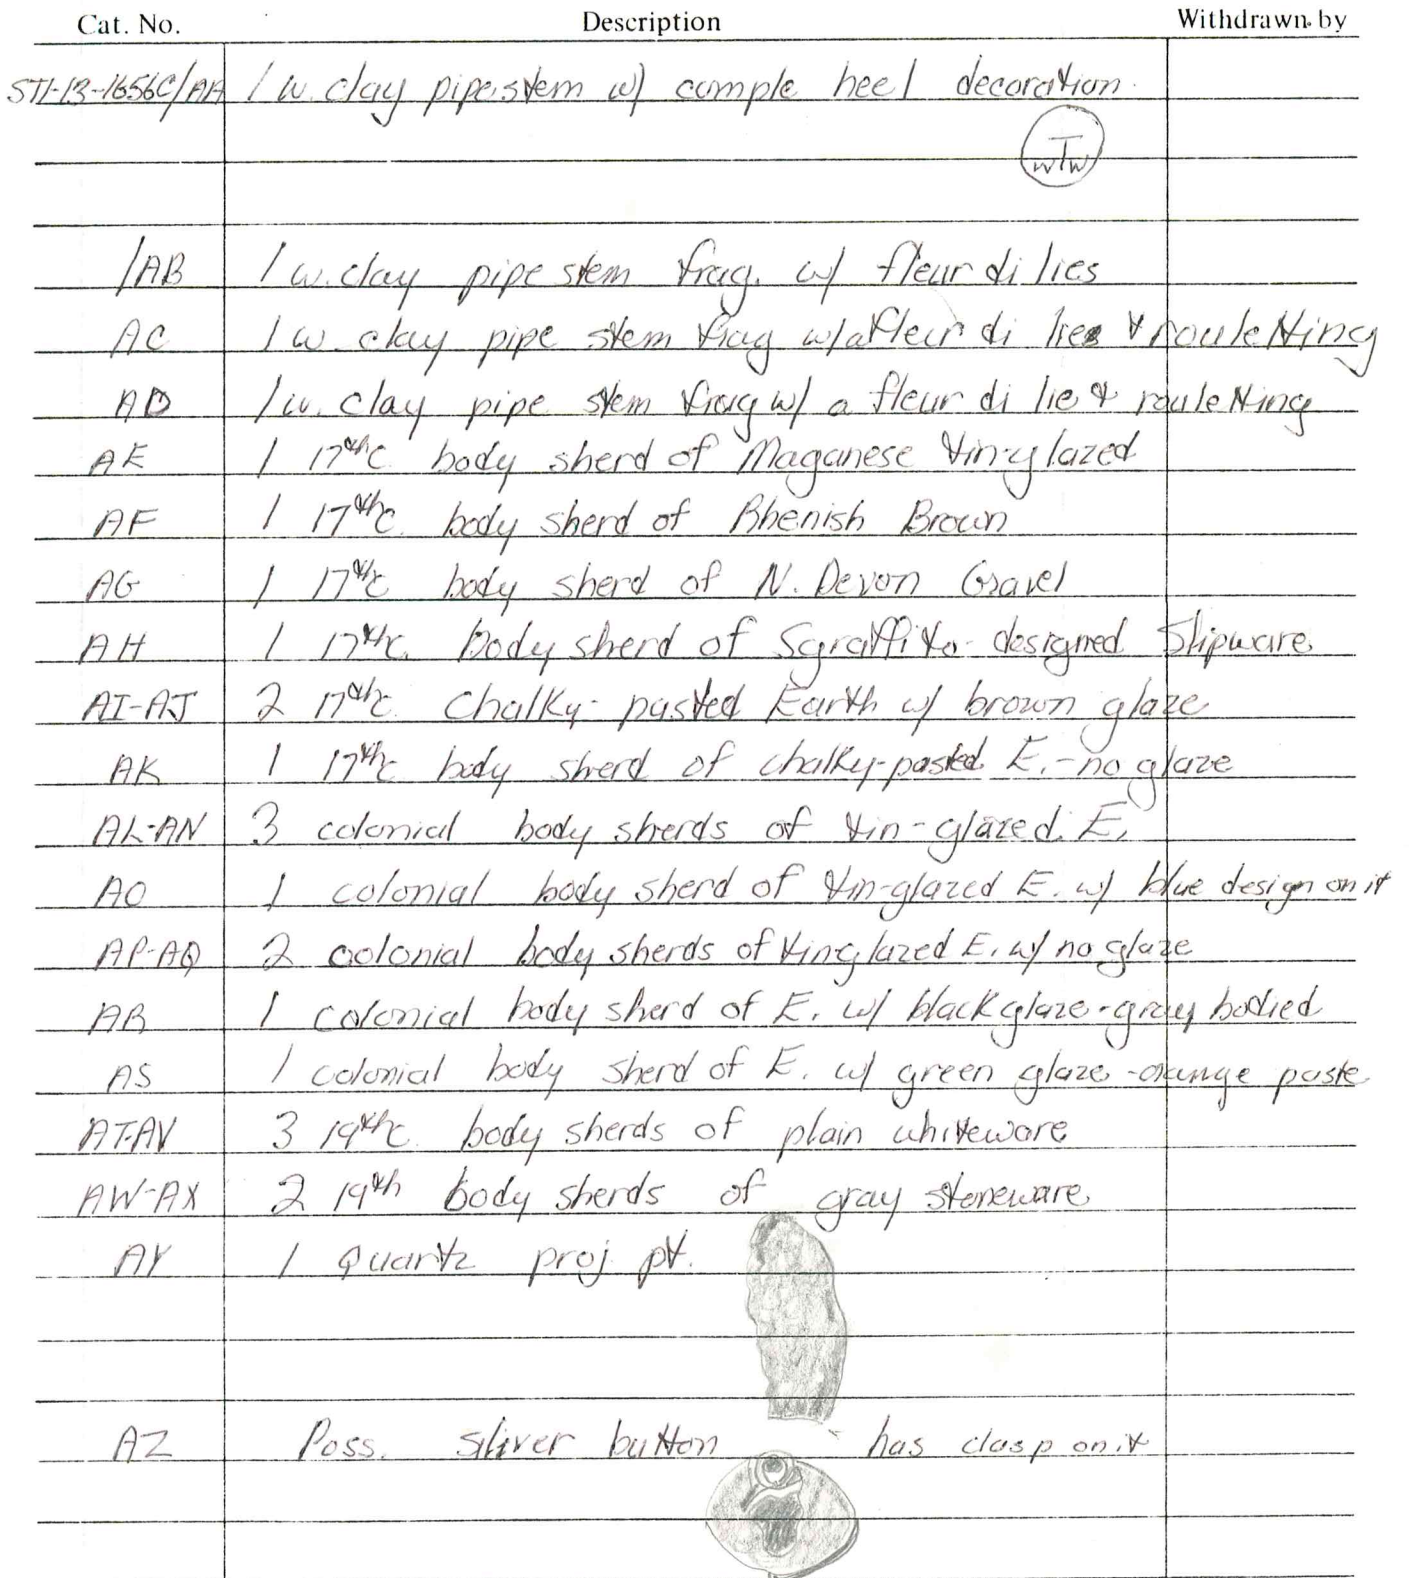 Cat. No. Description Withdrawn by
ST1-13-1656C/AA 1 w. clay pipestem w/ comple heel decoration.
wTw
/AB 1 w. clay pipe stem frag. w/ fleur di lies
AC 1 w. clay pipe stem frag w/a fleur di lies & rouletting
AD 1 w. clay pipe stem frag w/ a fleur di lie & rouletting
AE 1 17thc body sherd of Maganese tin-glazed
AF 1 17thc. body sherd of Rhenish Brown
AG 1 17thc body sherd of N. Devon Gravel
AH 1 17thc. body sherd of Sgraffito-designed Slipware
AI-AJ 2 17thc. chalky-pasted Earth w/ brown glaze
AK 1 17thc body sherd of chalky-pasted E.-no glaze
AL-AN 3 colonial body sherds of tin-glazed E.
AO 1 colonial body sherd of tin-glazed E. w/ blue design on it
AP-AQ 2 colonial body sherds of tinglazed E. w/ no glaze
AR 1 colonial body sherd of E. w/ black glaze-gray bodied
AS 1 colonial body sherd of E. w/ green glaze-orange paste
AT-AV 3 19thc. body sherds of plain whiteware
AW-AX 2 19th body sherds of gray stoneware
AY 1 Quartz proj. pt.
AZ Poss. siliver button has clasp on it